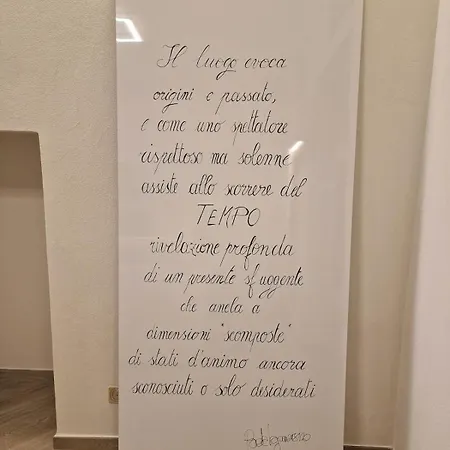 Il luogo evoca
origini e passato,
e come uno spettatore
rispettoso ma solenne
assiste allo scorrere del
TEMPO
rivelazione profonda
di un presente sfuggente
che anela a
dimensioni "scomposte"
di stati d'animo ancora
sconosciuti o solo desiderati